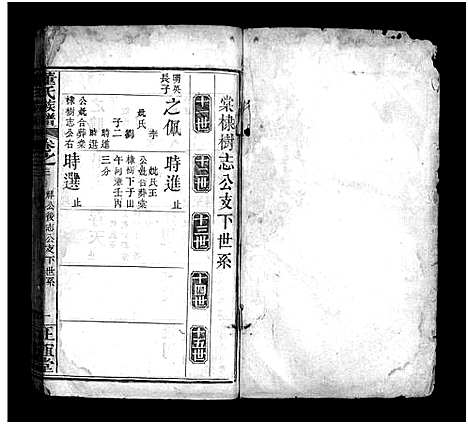 棠棣樹志公支下世系
十一世
十二世
十三世
十四世
十五世
時進 止
妣氏王
公妣合葬棠
棣樹下子山
午向兼壬丙
三分
之佩
明英
長子
妣氏
李
劉
子二
時進
時選
公妣合葬棠
棣樹志公右
時選 止
董氏族譜
卷之三
祥公後志公支下世系
一
正誼堂